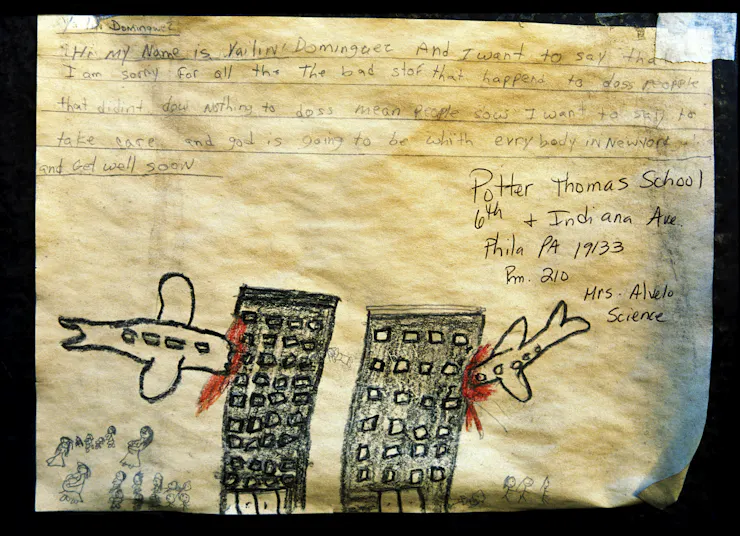 Dominguez
"Hi My Name is Yailin Dominguez And I want to say that
I am sorry for all the The bad stof that happend to doss peopple
that didint dow Nothing to doss mean people sow I want to say to
take care and god is going to be whith evry body in Newyork
and Get well soon
Potter Thomas School
6th + Indiana Ave.
Phila PA 19133
Rm. 210
Mrs. Alvelo
Science